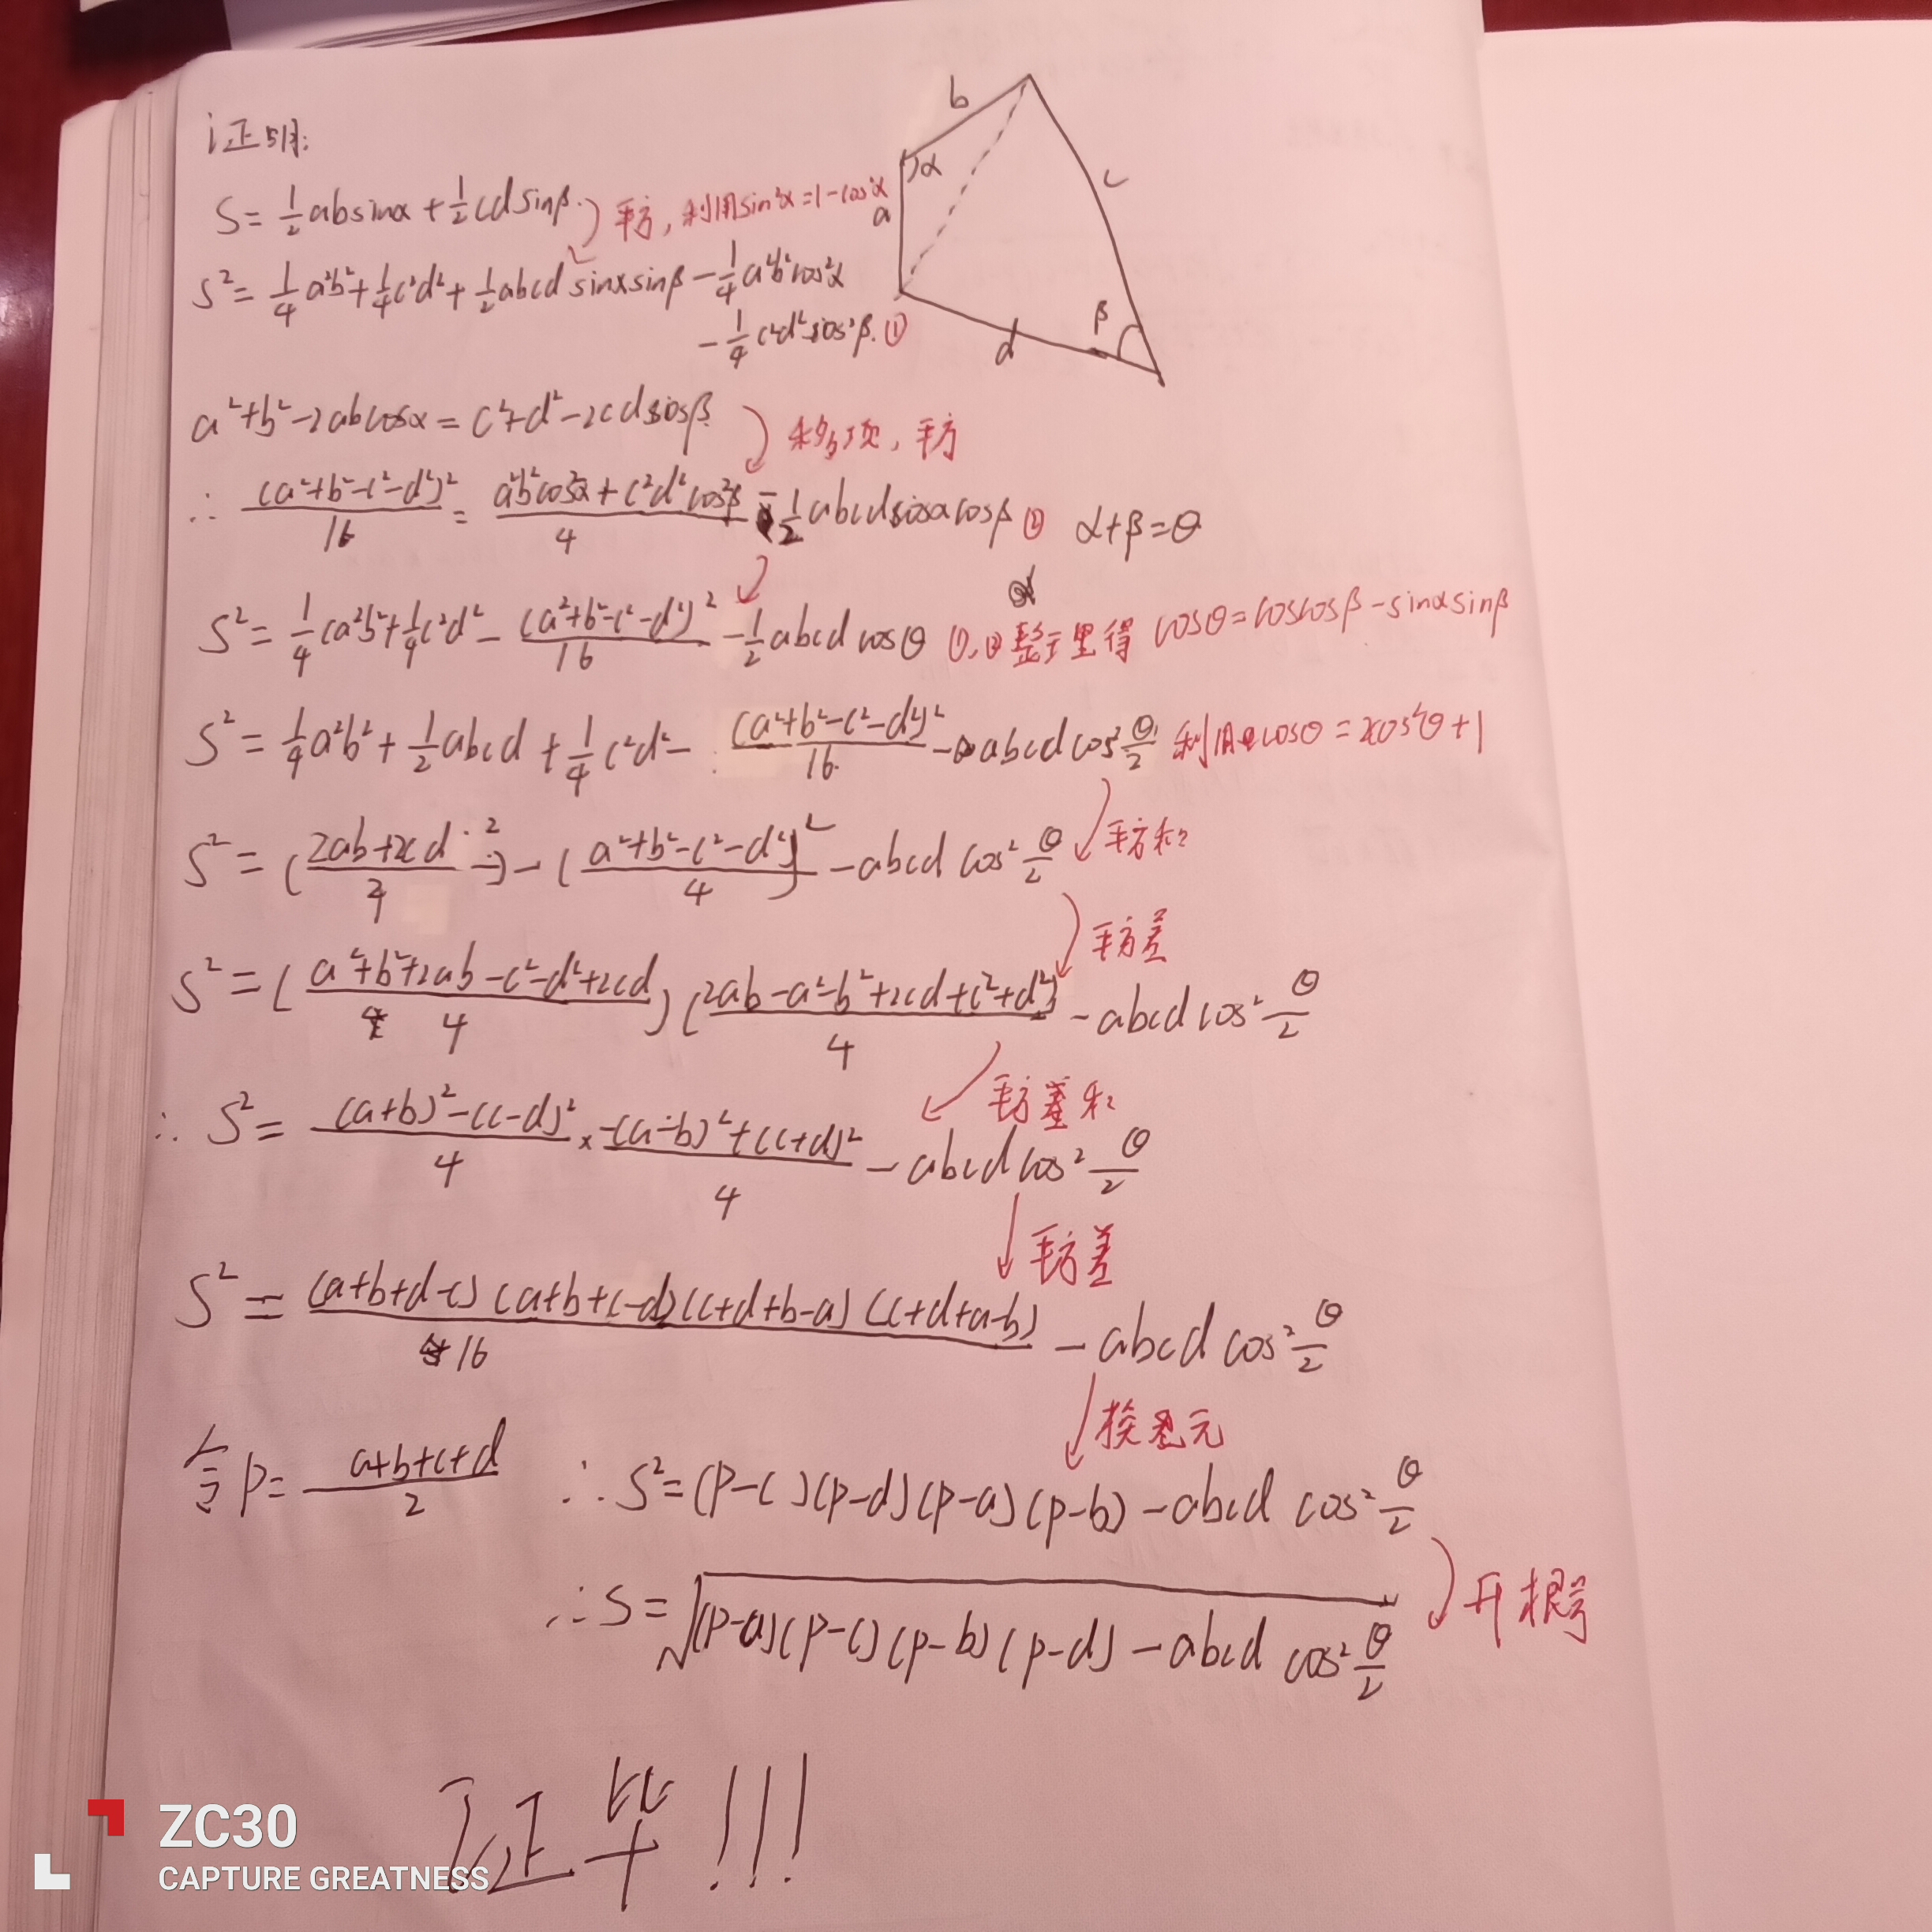 证明:
b
α
c
a
β
d
S = 1/2 absinα + 1/2 cdsinβ.
平方, 利用sin²α=1-cos²α
S² = 1/4 a²b² + 1/4 c²d² + 1/2 abcd sinαsinβ - 1/4 a²b²cos²α
- 1/4 c²d²cos²β. ①
a²+b²-2abcosα = c²+d²-2cdcosβ
移项, 平方
∴ (a²+b²-c²-d²)²/16 = (a²b²cos²α + c²d²cos²β)/4 - 1/2 abcdcosαcosβ ② α+β=θ
S² = 1/4 a²b² + 1/4 c²d² - (a²+b²-c²-d²)²/16 - 1/2 abcd cosθ ①,②整理得 cosθ=coscosβ-sinαsinβ
S² = 1/4 a²b² + 1/2 abcd + 1/4 c²d² - (a²+b²-c²-d²)²/16 - abcd cos² θ/2 利用cosθ=2cos²θ+1
S² = ((2ab+2cd)/4)² - ((a²+b²-c²-d²)/4)² - abcd cos² θ/2
平方和
平方差
S² = ((a²+b²+2ab-c²-d²+2cd)/4)((2ab-a²-b²+2cd+c²+d²)/4) - abcd cos² θ/2
平方差和
∴ S² = ((a+b)²-(c-d)²)/4 × (-(a-b)²+(c+d)²)/4 - abcd cos² θ/2
平方差
S² = (a+b+d-c)(a+b+c-d)(c+d+b-a)(c+d+a-b)/16 - abcd cos² θ/2
换元
令p= (a+b+c+d)/2 ∴S²=(p-c)(p-d)(p-a)(p-b)-abcd cos² θ/2
开根号
∴S=√((p-a)(p-c)(p-b)(p-d)-abcd cos² θ/2)
证毕!!!
ZC30
CAPTURE GREATNESS